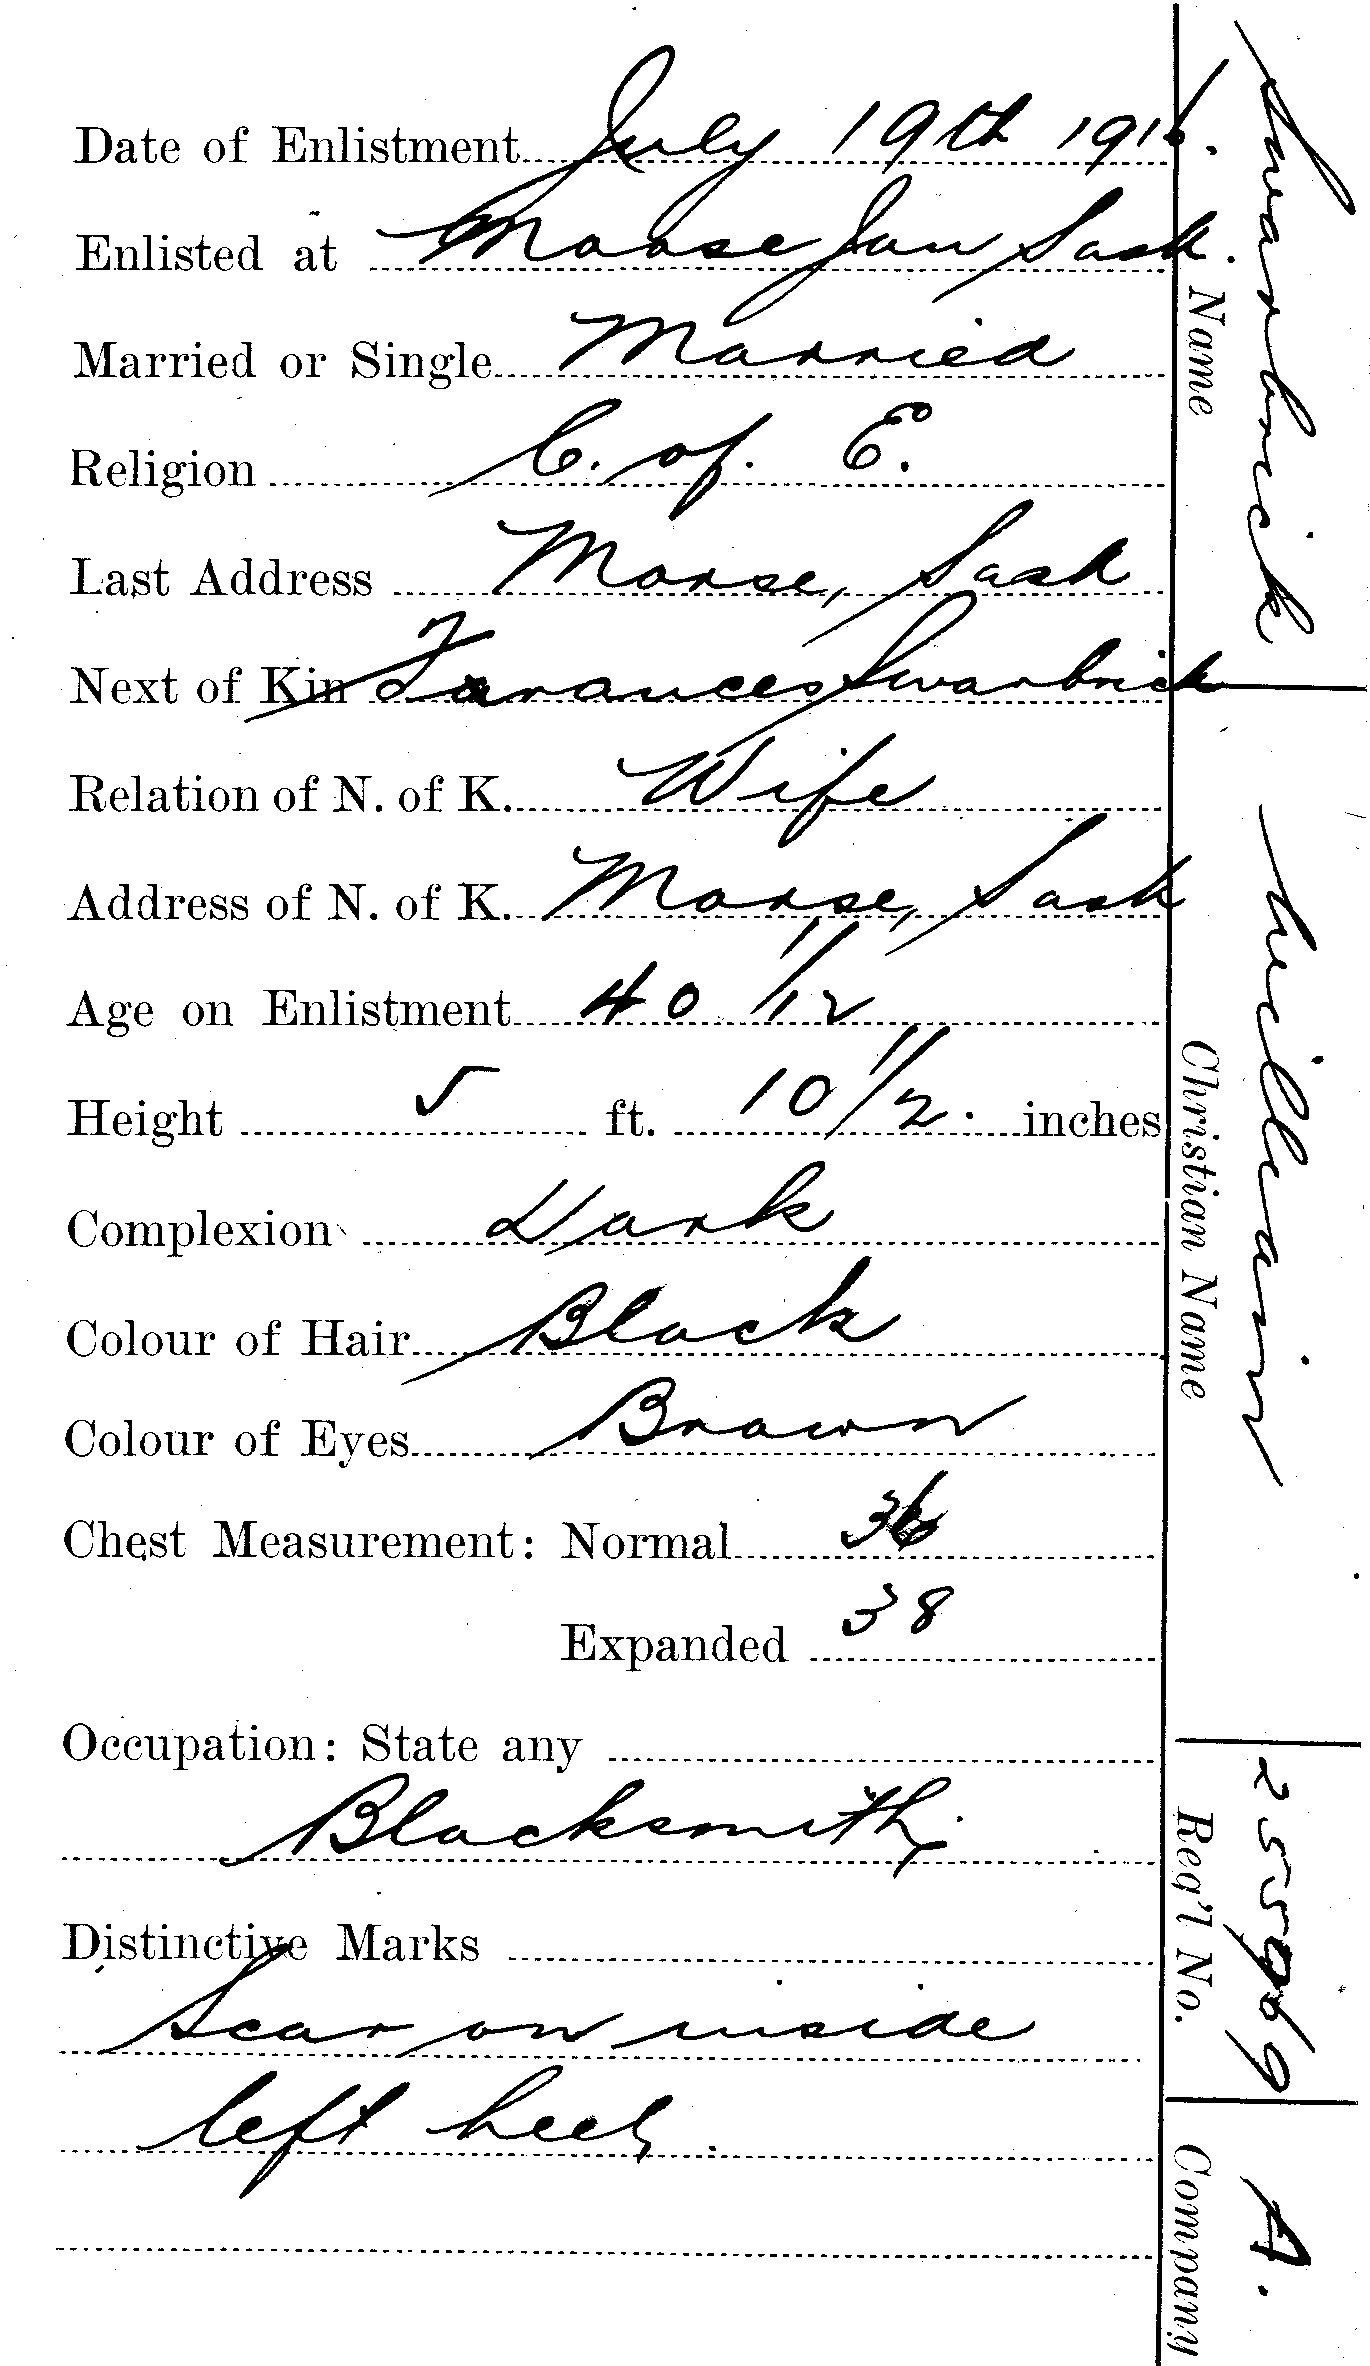 Date of Enlistment July 19th 1916.
Enlisted at Moose Jaw Sask.
Married or Single Married
Religion C. of. E.
Last Address Morse, Sask
Next of Kin Farances Swarbrick
Relation of N. of K. Wife
Address of N. of K. Morse, Sask
Age on Enlistment 40 11/12
Height 5 ft. 10 1/2. inches
Complexion Dark
Colour of Hair Black
Colour of Eyes Brown
Chest Measurement: Normal 36
Expanded 38
Occupation: State any
Blacksmith.
Distinctive Marks
Scar on inside
left heel.
Swarbrick
Name
William
Christian Name
255969
Reg'l No.
A.
Company